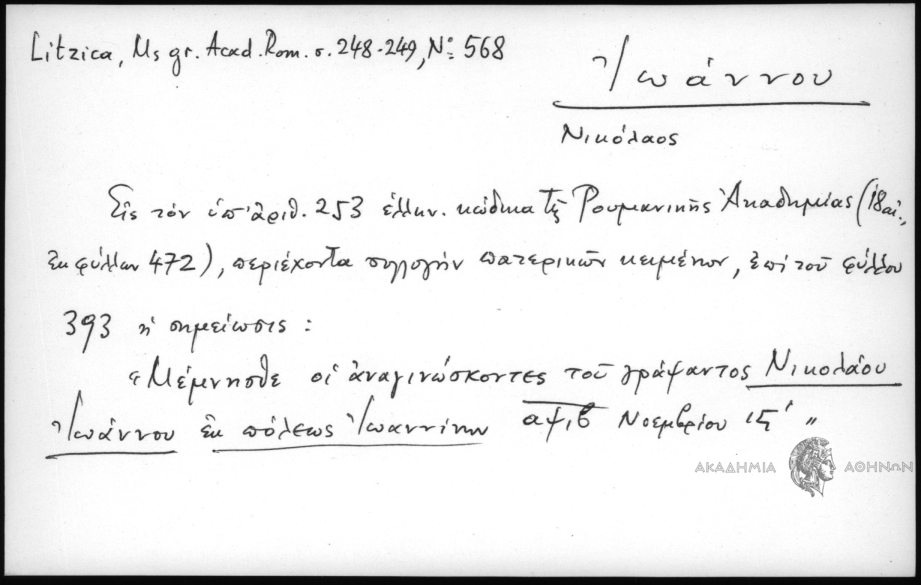 Litzica, Ms gr. Acad. Rom. σ. 248-249, No 568
Ἰωάννου
Νικόλαος
Εἰς τὸν ὑπ' ἀριθ. 253 ἑλλην. κώδικα τῆς Ρουμανικῆς Ἀκαδημίας (18 αἰ.,
ἐκ φύλλων 472), περιέχοντα συλλογὴν πατερικῶν κειμένων, ἐπὶ τοῦ φύλλου
393 ἡ σημείωσις:
«Μέμνησθε οἱ ἀναγινώσκοντες τοῦ γράψαντος Νικολάου
Ἰωάννου ἐκ πόλεως Ἰωαννίνων αψιβ Νοεμβρίου ις' »
ΑΚΑΔΗΜΙΑ ΑΘΗΝΩΝ